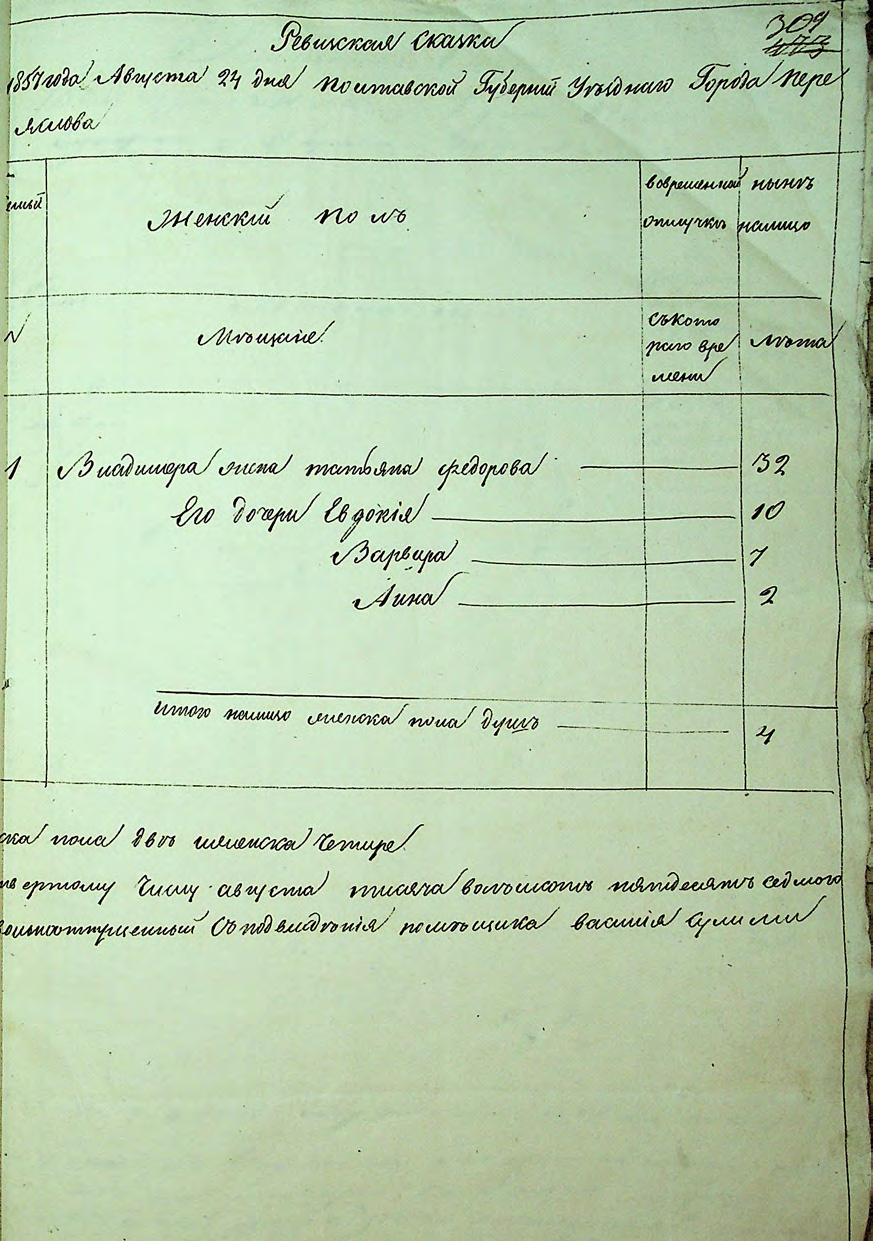 309
473
Ревизская сказка
1857 года Августа 24 дня Полтавской Губерний Уѣзднаго Города Пере
яслова
емьи
Женскій полъ
вовременной
отлучкѣ
нынѣ
налицо
№
Мѣщане
съкото
раго вре
мени
лѣта
1 Владимера жена татьяна федорова 32
Его дочери Евдокія 10
Варвара 7
Анна 2
итого налицо женска пола душъ 4
ска пола двѣ иженска Четире
твертому Числу августа тисяча восимсотъ пятдесятъ седмого
вольноотпущенный Съподвладѣнія помѣщика василія Сулими